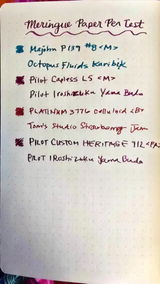 Meringue Paper Pen Test
Majohn P139 #8 <M>
Octopus Fluids Karibik
Pilot Capless LS <M>
Pilot Iroshizuku Yama Budo
PLATINUM 3776 Celluloid <B>
Tom's Studio Strawberry Jam
PILOT CUSTOM HERITAGE 912 <FA>
PILOT IRoshizuku Yama Budo